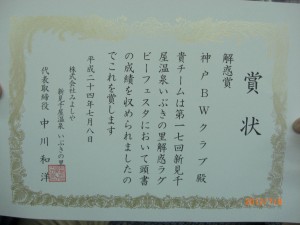 賞状
解惑賞
神戸BWクラブ殿
貴チームは第一七回新見千
屋温泉いぶきの里解惑ラグ
ビーフェスタにおいて頭書
の成績を収められましたの
でこれを賞します
平成二十四年七月八日
株式会社みよしや
新見千屋温泉いぶきの里
代表取締役 中川和洋